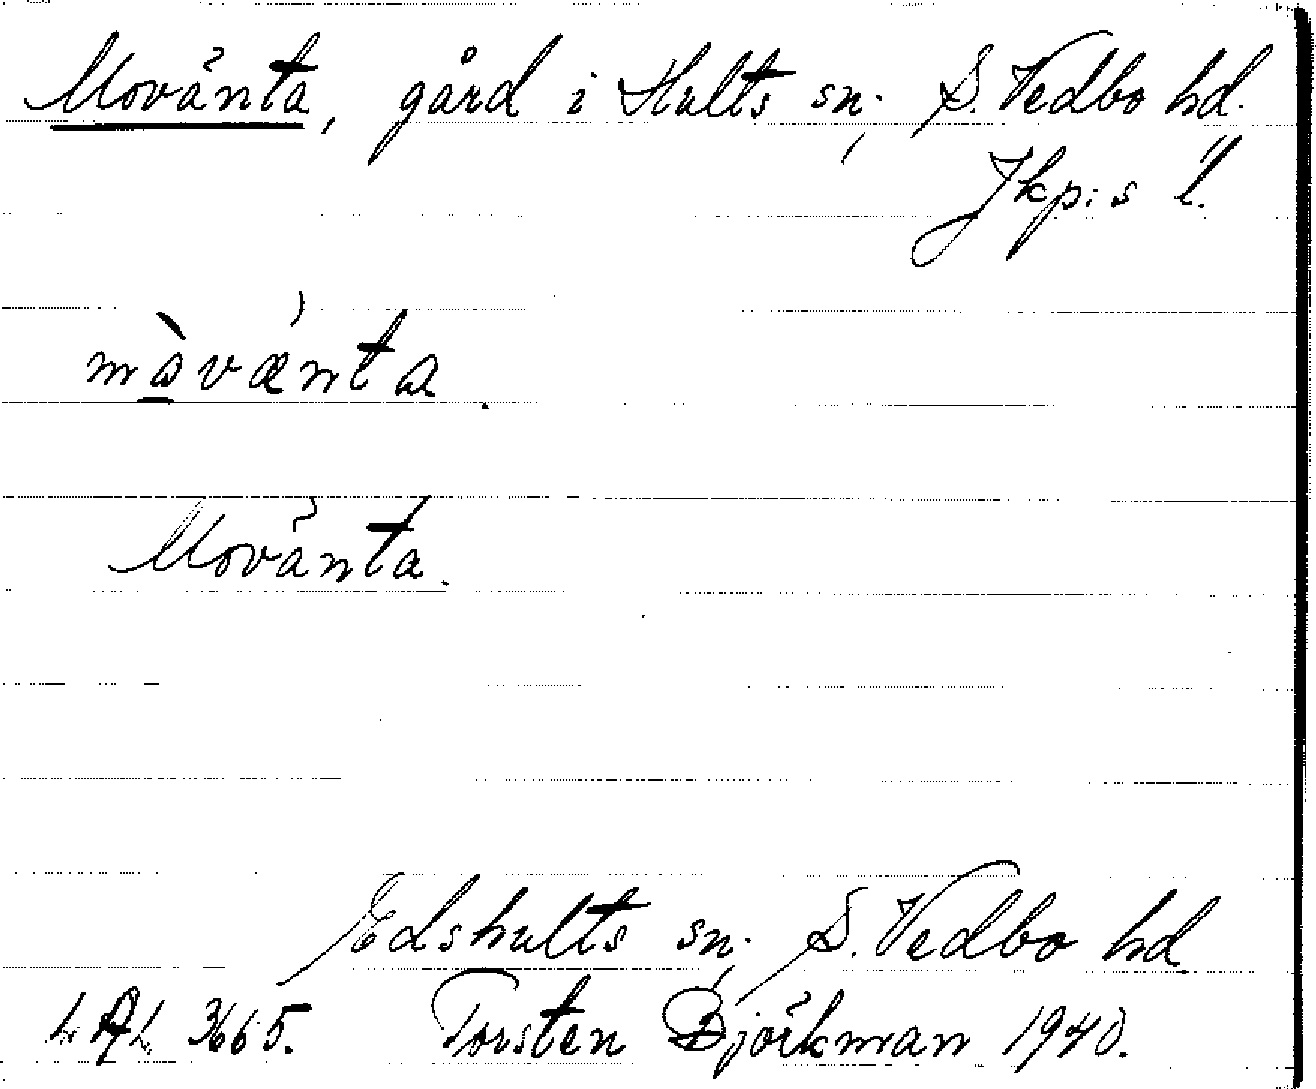 Movänta, gård i Hults sn; S. Vedbo hd.
Jkp:s l.
mòvænta.
Movänta.
Edshults sn; S. Vedbo hd
LAL 3665. Torsten Björkman 1940.